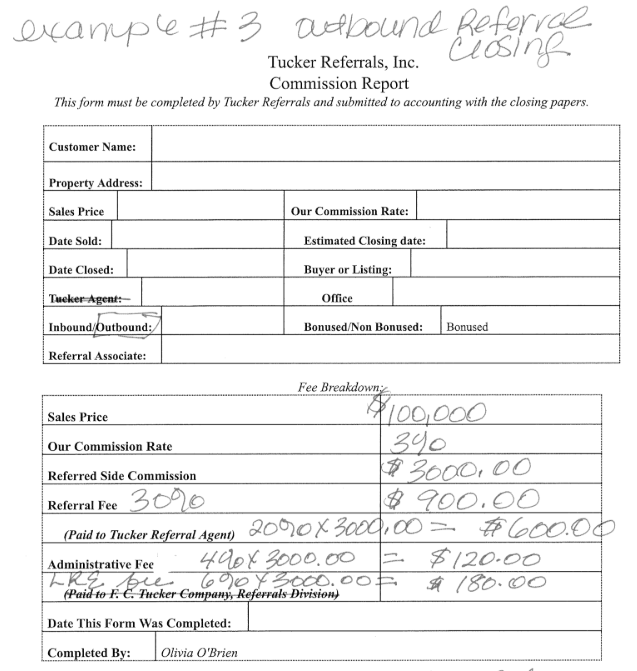 example #3 outbound Referral
Closing
Tucker Referrals, Inc.
Commission Report
This form must be completed by Tucker Referrals and submitted to accounting with the closing papers.
Customer Name:
Property Address:
Sales Price Our Commission Rate:
Date Sold: Estimated Closing date:
Date Closed: Buyer or Listing:
Tucker Agent: Office
Inbound/Outbound: Bonused/Non Bonused: Bonused
Referral Associate:
Fee Breakdown:
Sales Price $100,000
Our Commission Rate 3%
Referred Side Commission $ 3000.00
Referral Fee 30% $ 900.00
(Paid to Tucker Referral Agent) 20% X 3000.00 = $600.00
Administrative Fee 4% X 3000.00 = $120.00
LRE fee 6% X 3000.00 = $ 180.00
(Paid to F. C. Tucker Company, Referrals Division)
Date This Form Was Completed:
Completed By: Olivia O'Brien